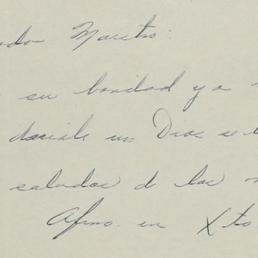 Maestro:
su bondad y a
decirle un Dios se l
saludos de las
Afmo. en Xto